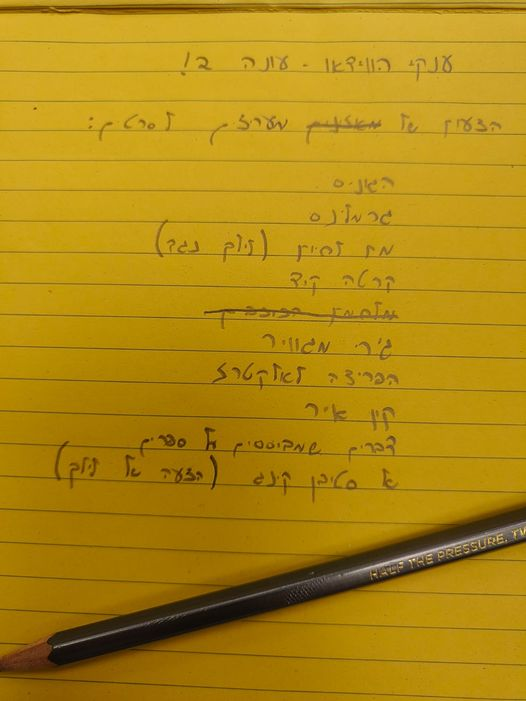 ענקי הווידאו - עונה ב!
הצעות של מאזינים מעריצים לסרטים:
הגוניס
גרמלינס
מת לחיות (לילך נגד)
קרטה קיד
מלחמת הכוכבים
ג'רי מגוויר
הבריחה מאלקטרז
קון איר
דברים שמבוססים על ספרים
של סטיבן קינג (הצעה של לילך)
HALF THE PRESSURE, TW